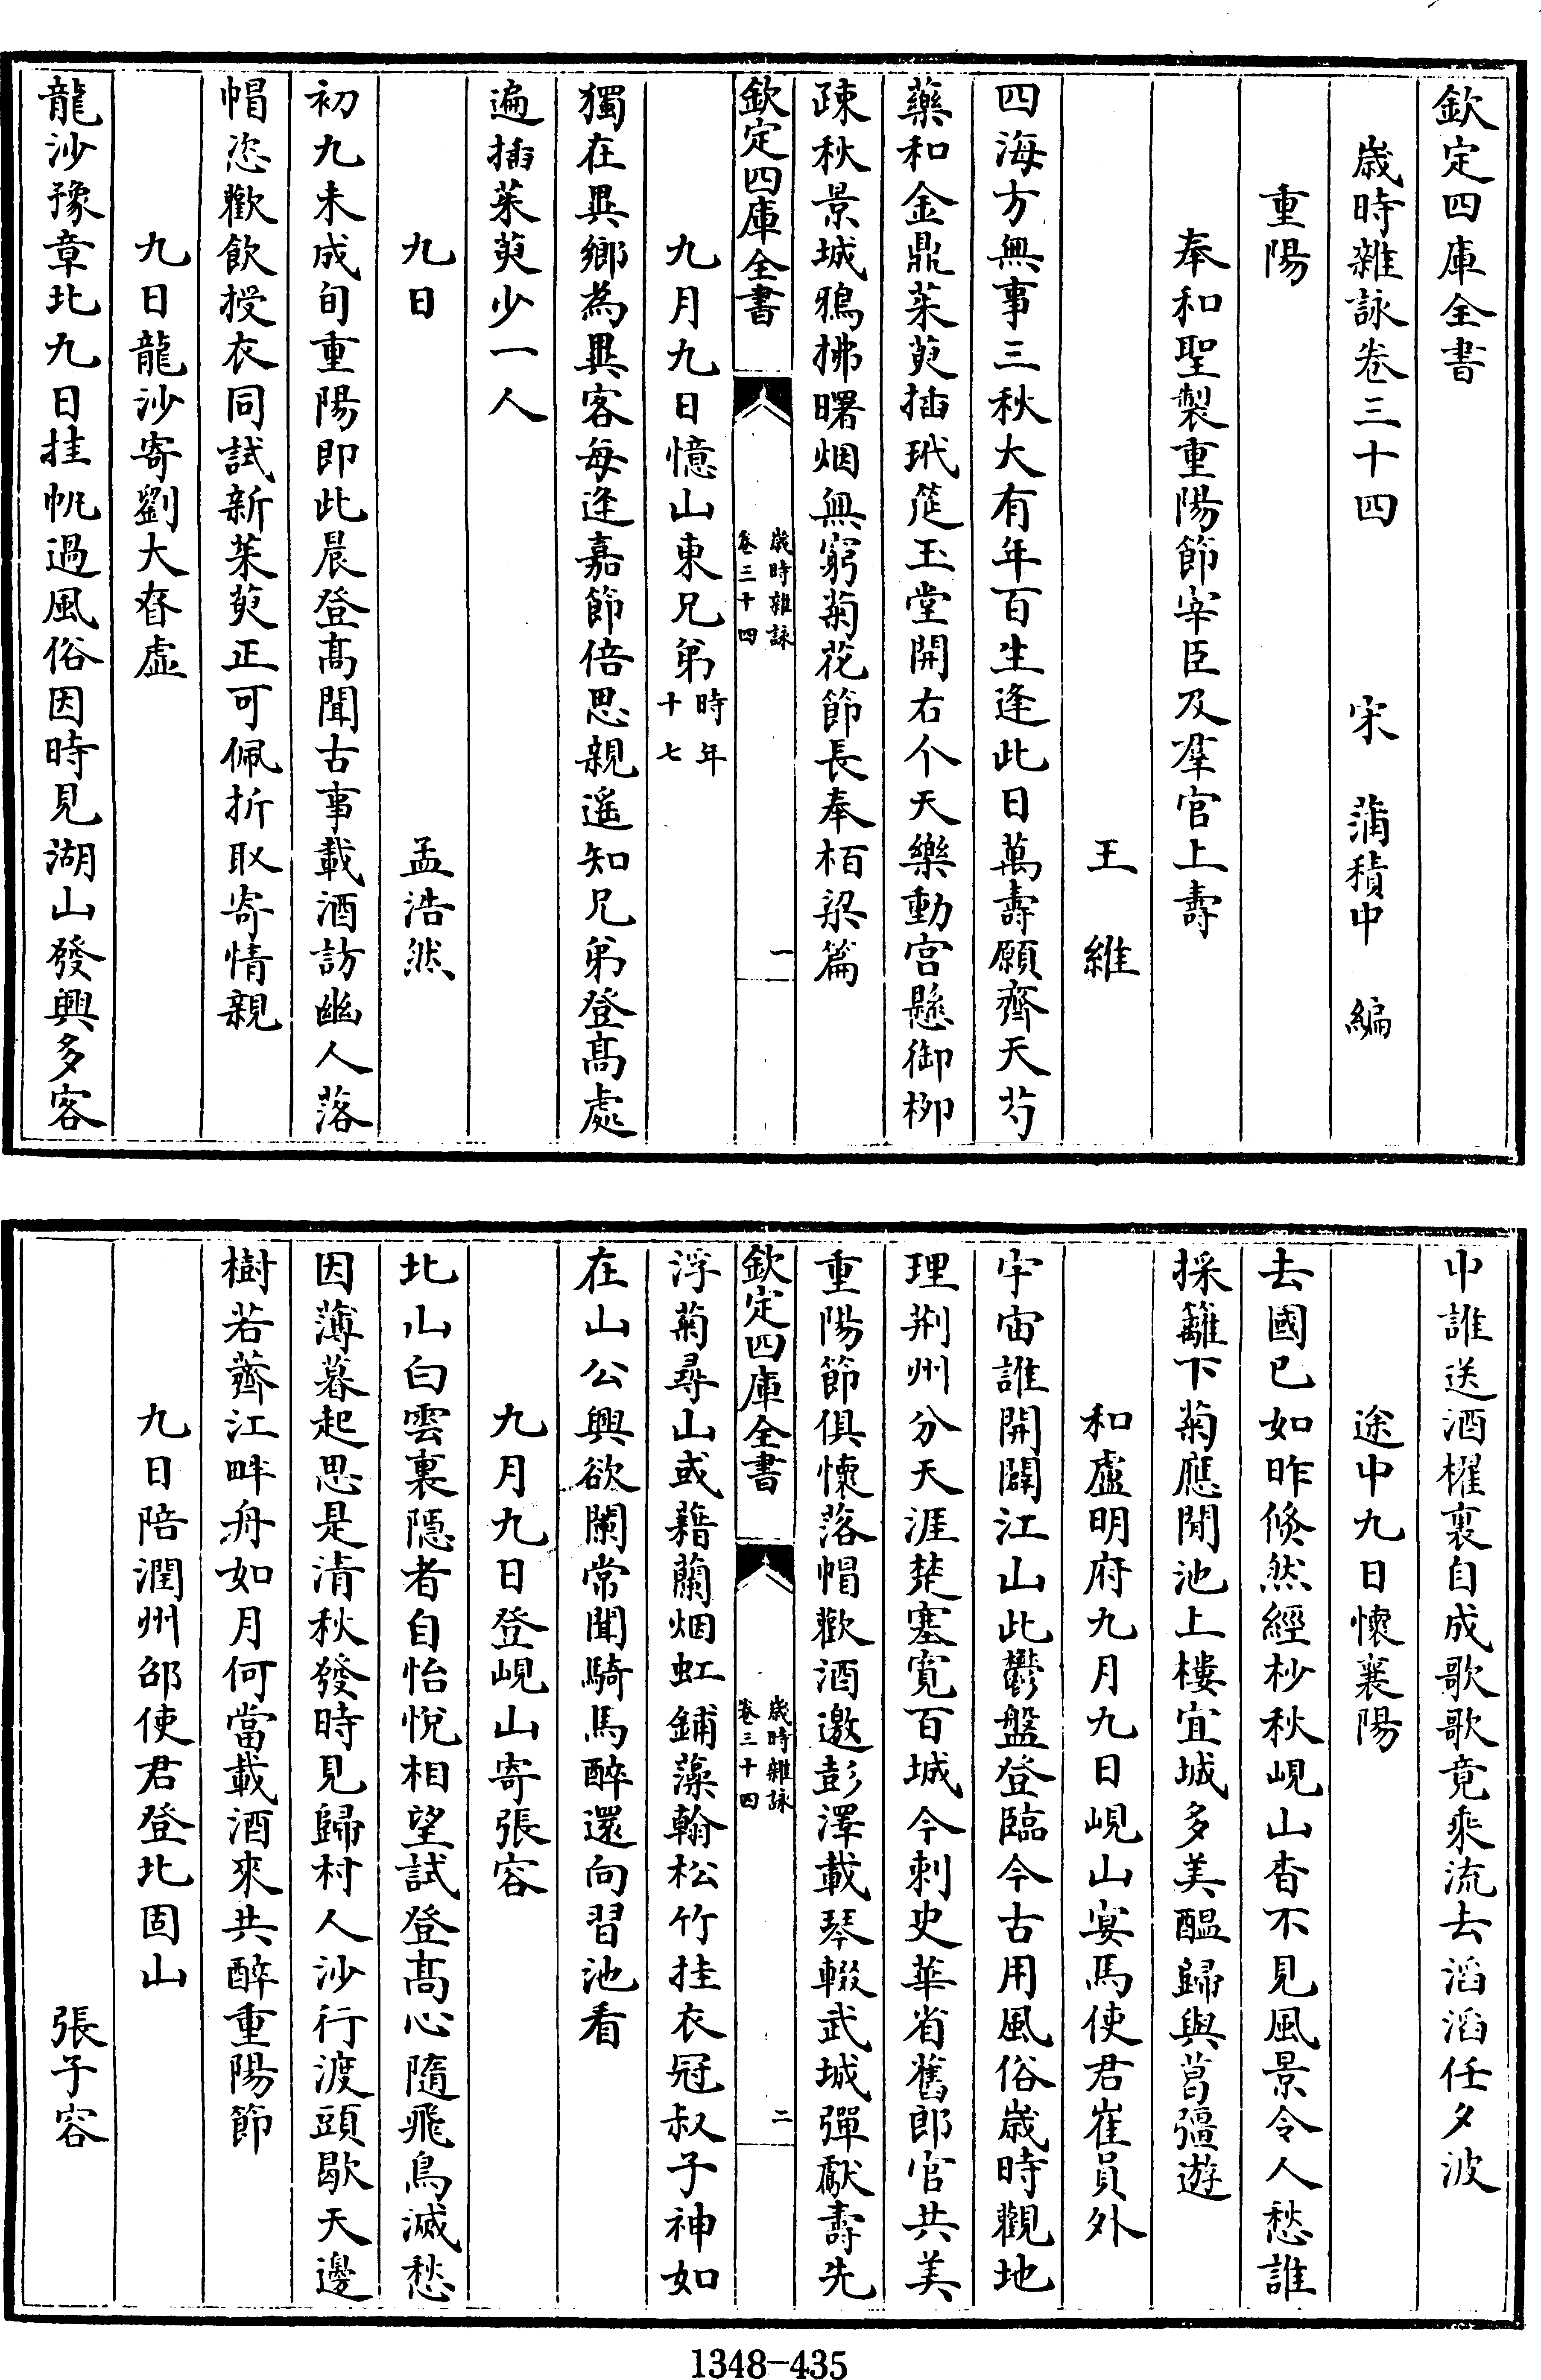 欽定四庫全書
歲時雜詠卷三十四　宋　蒲積中　編
重陽
奉和聖製重陽節宰臣及羣官上壽
王維
四海方無事三秋大有年百生逢此日萬壽願齊天芍
藥和金鼎茱萸插玳筵玉堂開右个天樂動宮懸御柳
疎秋景城鴉拂曙烟無窮菊花節長奉栢梁篇
欽定四庫全書
歲時雜詠
卷三十四
一
九月九日憶山東兄弟時年十七
獨在異鄉為異客每逢嘉節倍思親遥知兄弟登髙處
遍插茱萸少一人
九日　孟浩然
初九未成旬重陽即此晨登髙聞古事載酒訪幽人落
帽恣歡飲授衣同試新茱萸正可佩折取寄情親
九日龍沙寄劉大眘虛
龍沙豫章北九日挂帆過風俗因時見湖山發興多客
中誰送酒櫂裏自成歌歌竟乘流去滔滔任夕波
途中九日懷襄陽
去國已如昨倐然經杪秋峴山杳不見風景令人愁誰
採籬下菊應閒池上樓宜城多美醖歸與葛彊遊
和盧明府九月九日峴山宴馬使君崔員外
宇宙誰開闢江山此鬱盤登臨今古用風俗歲時觀地
理荆州分天涯楚塞寛百城今刺史華省舊郎官共美
重陽節俱懷落帽歡酒邀彭澤載琴輟武城彈獻壽先
欽定四庫全書
歲時雜詠
卷三十四
二
浮菊尋山或藉蘭烟虹鋪藻翰松竹挂衣冠叔子神如
在山公興欲闌常聞騎馬醉還向習池看
九月九日登峴山寄張容
北山白雲裏隱者自怡悅相望試登髙心隨飛鳥滅愁
因薄暮起思是清秋發時見歸村人沙行渡頭歇天邊
樹若薺江畔舟如月何當載酒來共醉重陽節
九日陪潤州邵使君登北固山
張子容
1348-435